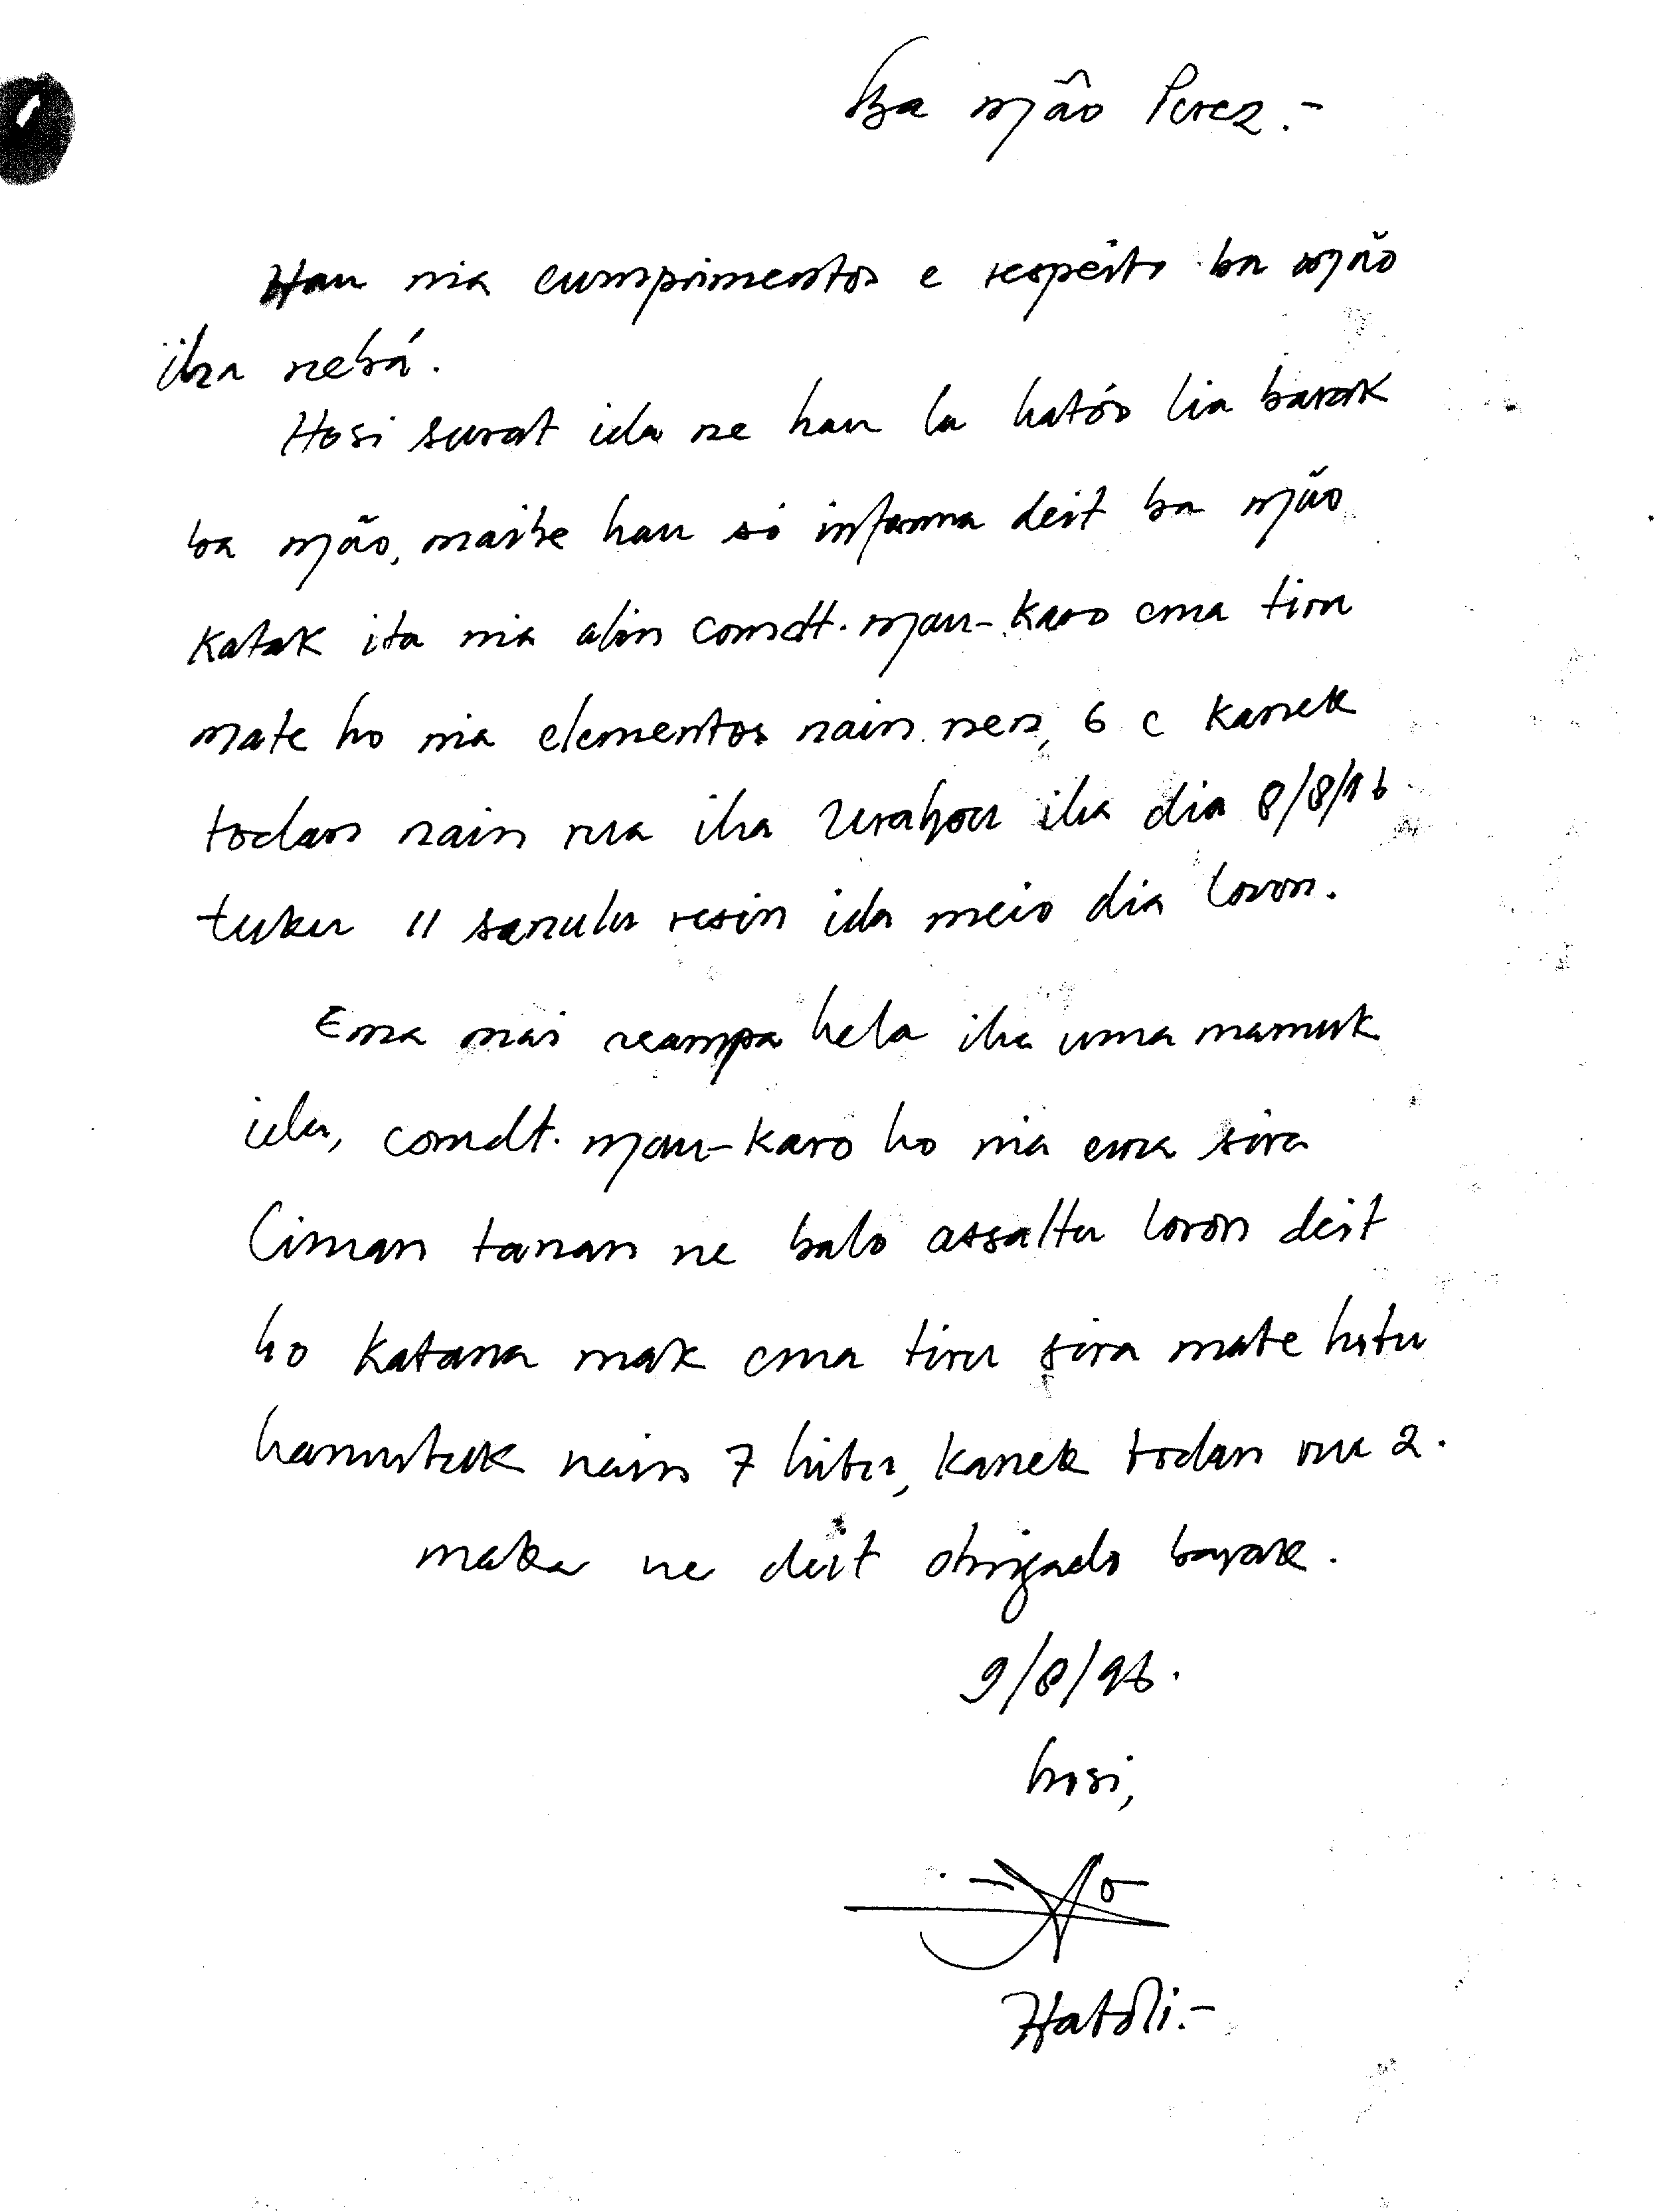 Ba mão Perez.-
Hau nia cumprimentos e respeito ba mão
iha nebá.
Hosi surat ida ne hau la hatóo lia barak
ba mão, maibe hau só informa deit ba mão
katak ita nia alin comdt. Mau-Karo ema tiru
mate ho nia elementos nain nen, 6 e kanek
todan nain rua iha iha dia 8/8/96
tuku 11 sanulu resin ida meio dia loron.
Ema mai reampa hela iha uma mamuk
ida, comdt. Mau-Karo ho nia ema sira
liman tanan ne balo assaltu loron deit
ho katana mak ema tiru sira mate hotu
hamutuk nain 7 hitu, kanek todan rua 2.
maka ne deit obrigado barak.
9/8/96.
hosi,
Hatóli.-